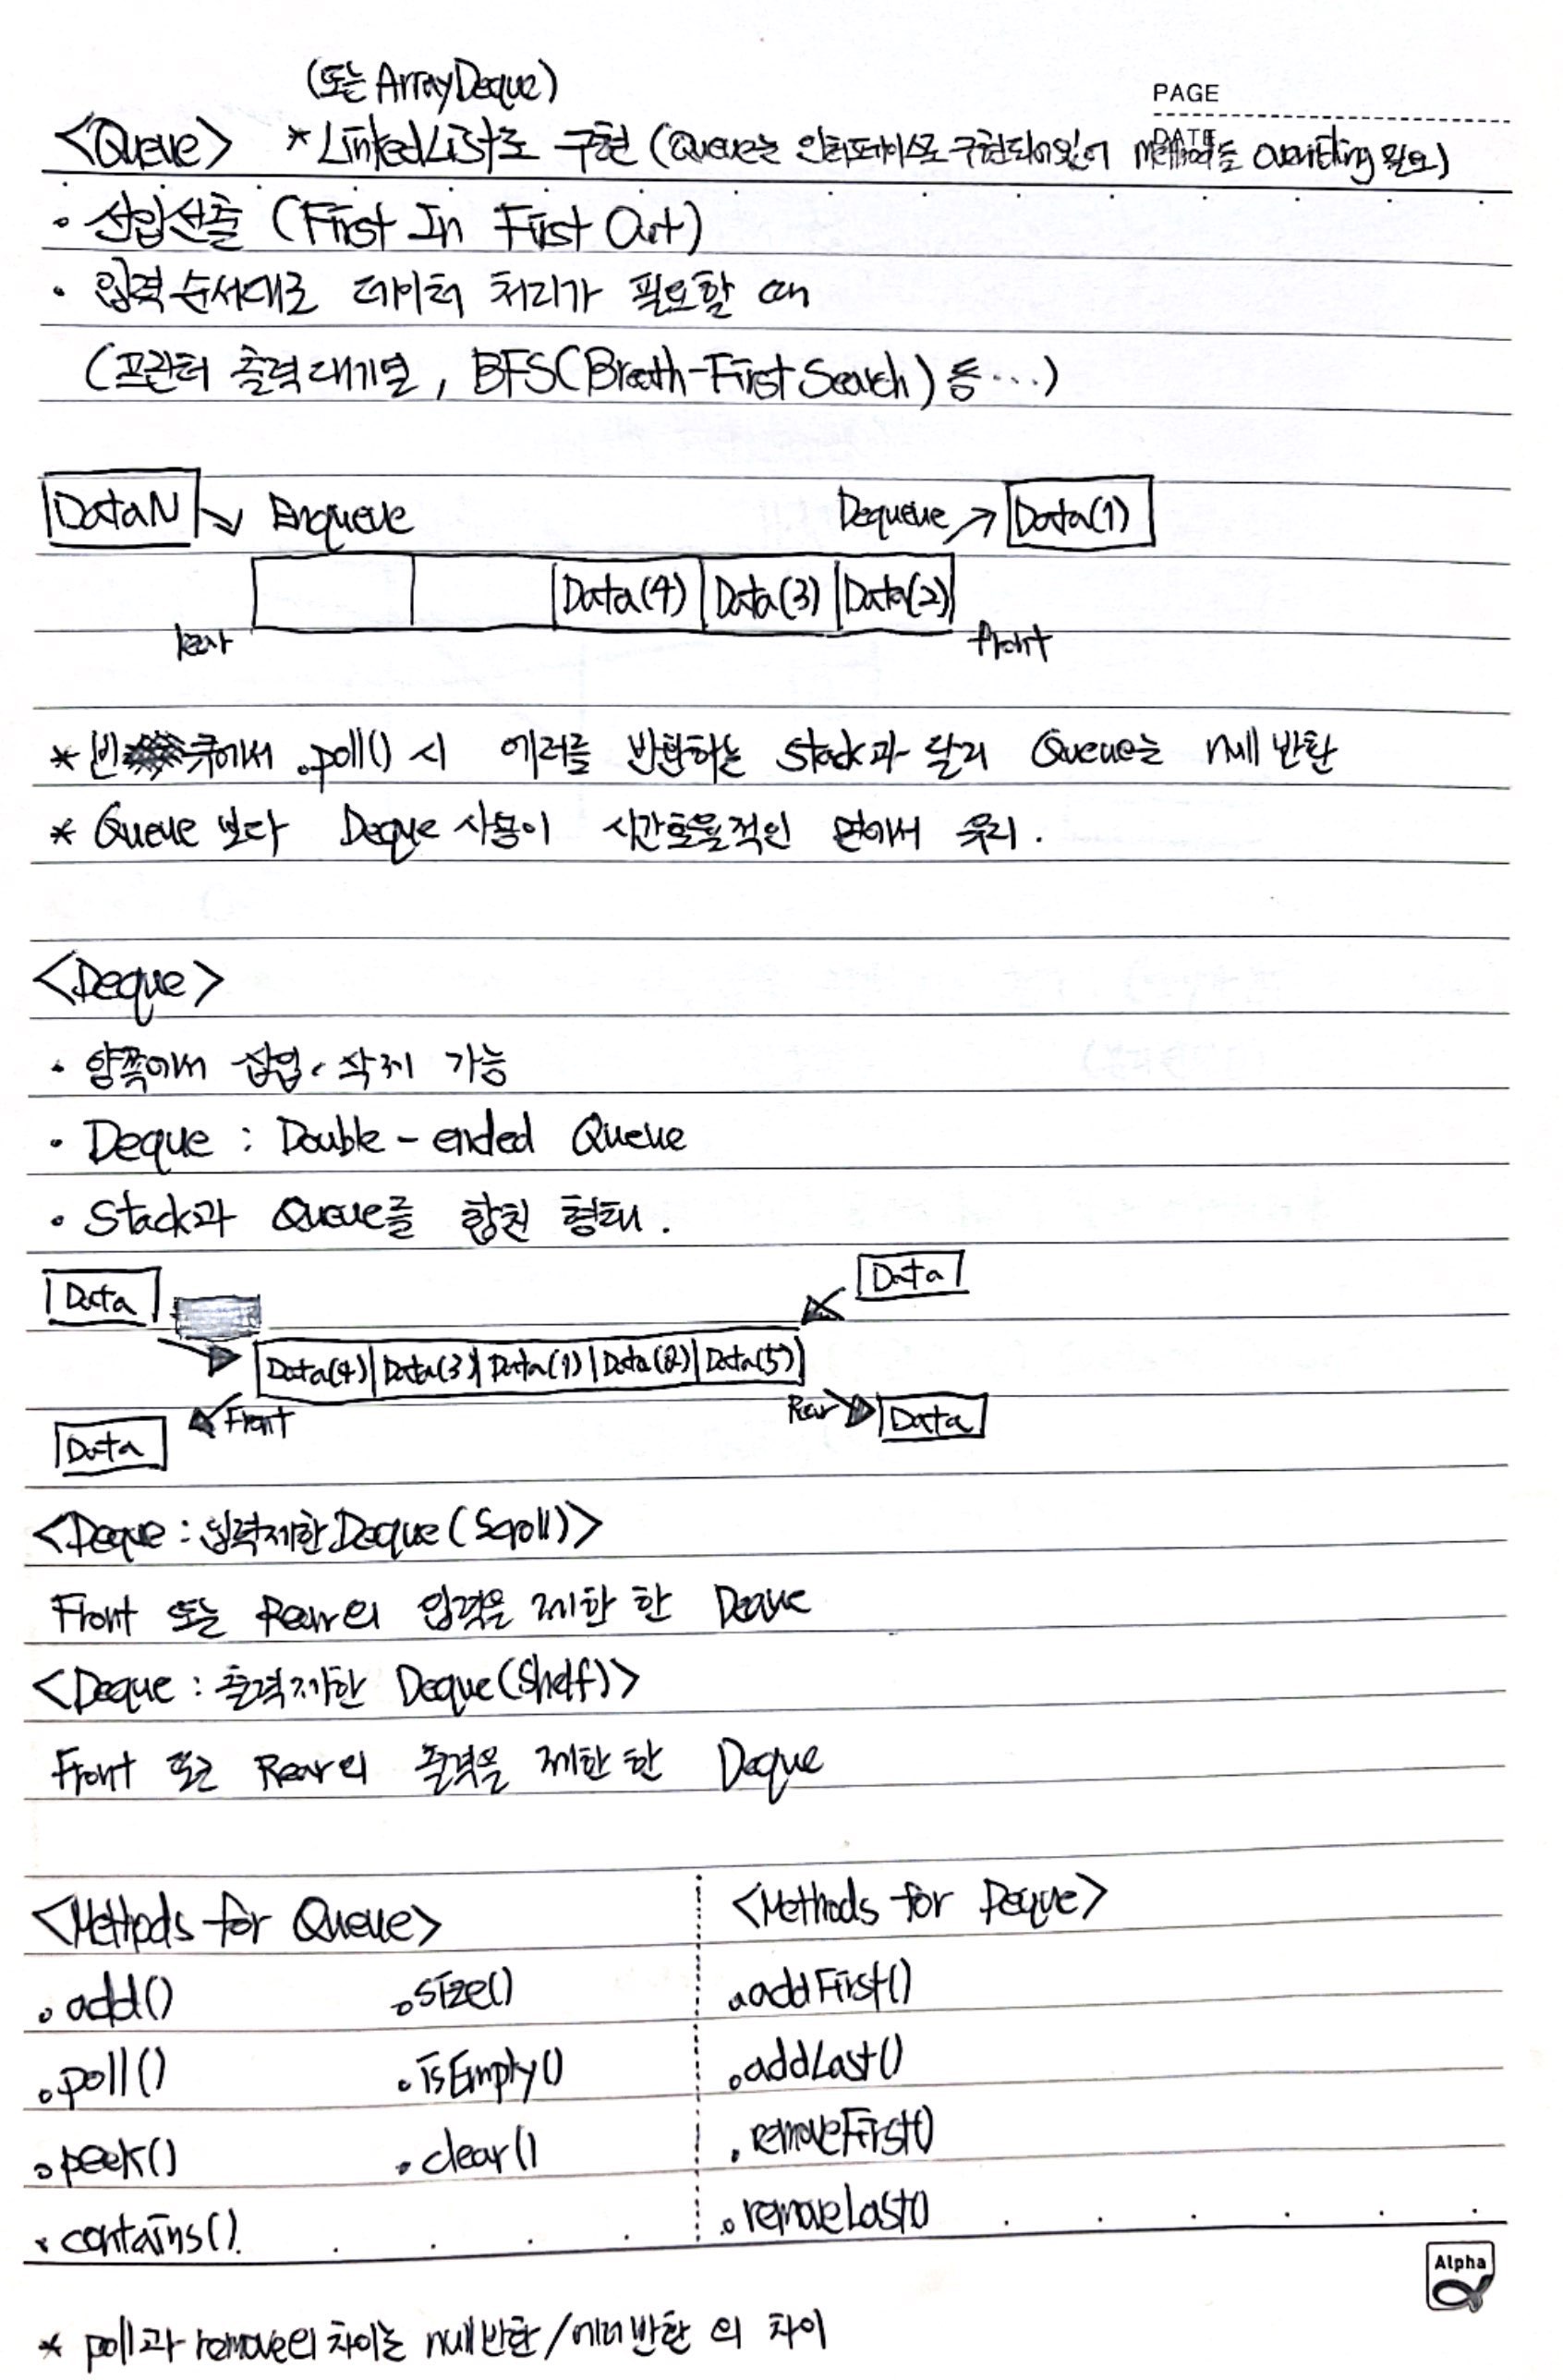 (또는 ArrayDeque)
PAGE
<Queue> *LinkedList로 구현 (Queue는 인터페이스로 구현되어있어 Method들 overriding 필요)
DATE
· 선입선출 (First In First Out)
· 입력 순서대로 데이터 처리가 필요할 때
(프린터 출력 대기열, BFS(Breath-First Search) 등...)
DataN Enqueue Dequeue Data(1)
Data(4) Data(3) Data(2)
Rear front
* 빈 큐에서 .poll() 시 에러를 반환하는 Stack과 달리 Queue는 null 반환
* Queue 보다 Deque 사용이 시간효율적인 면에서 유리.
<Deque>
· 양쪽에서 삽입·삭제 가능
· Deque : Double-ended Queue
· Stack과 Queue를 합친 형태.
Data Data
Data(4) Data(3) Data(1) Data(2) Data(5)
Front Rear
Data Data
<Deque : 입력제한 Deque(Scroll)>
Front 또는 Rear의 입력을 제한 한 Deque
<Deque : 출력제한 Deque(Shelf)>
Front 또는 Rear의 출력을 제한 한 Deque
<Methods for Queue> <Methods for Deque>
.add() .size() .addFirst()
.poll() .isEmpty() .addLast()
.peek() .clear() .removeFirst()
.contains() .removeLast()
Alpha
* poll과 remove의 차이는 null반환/에러반환 의 차이